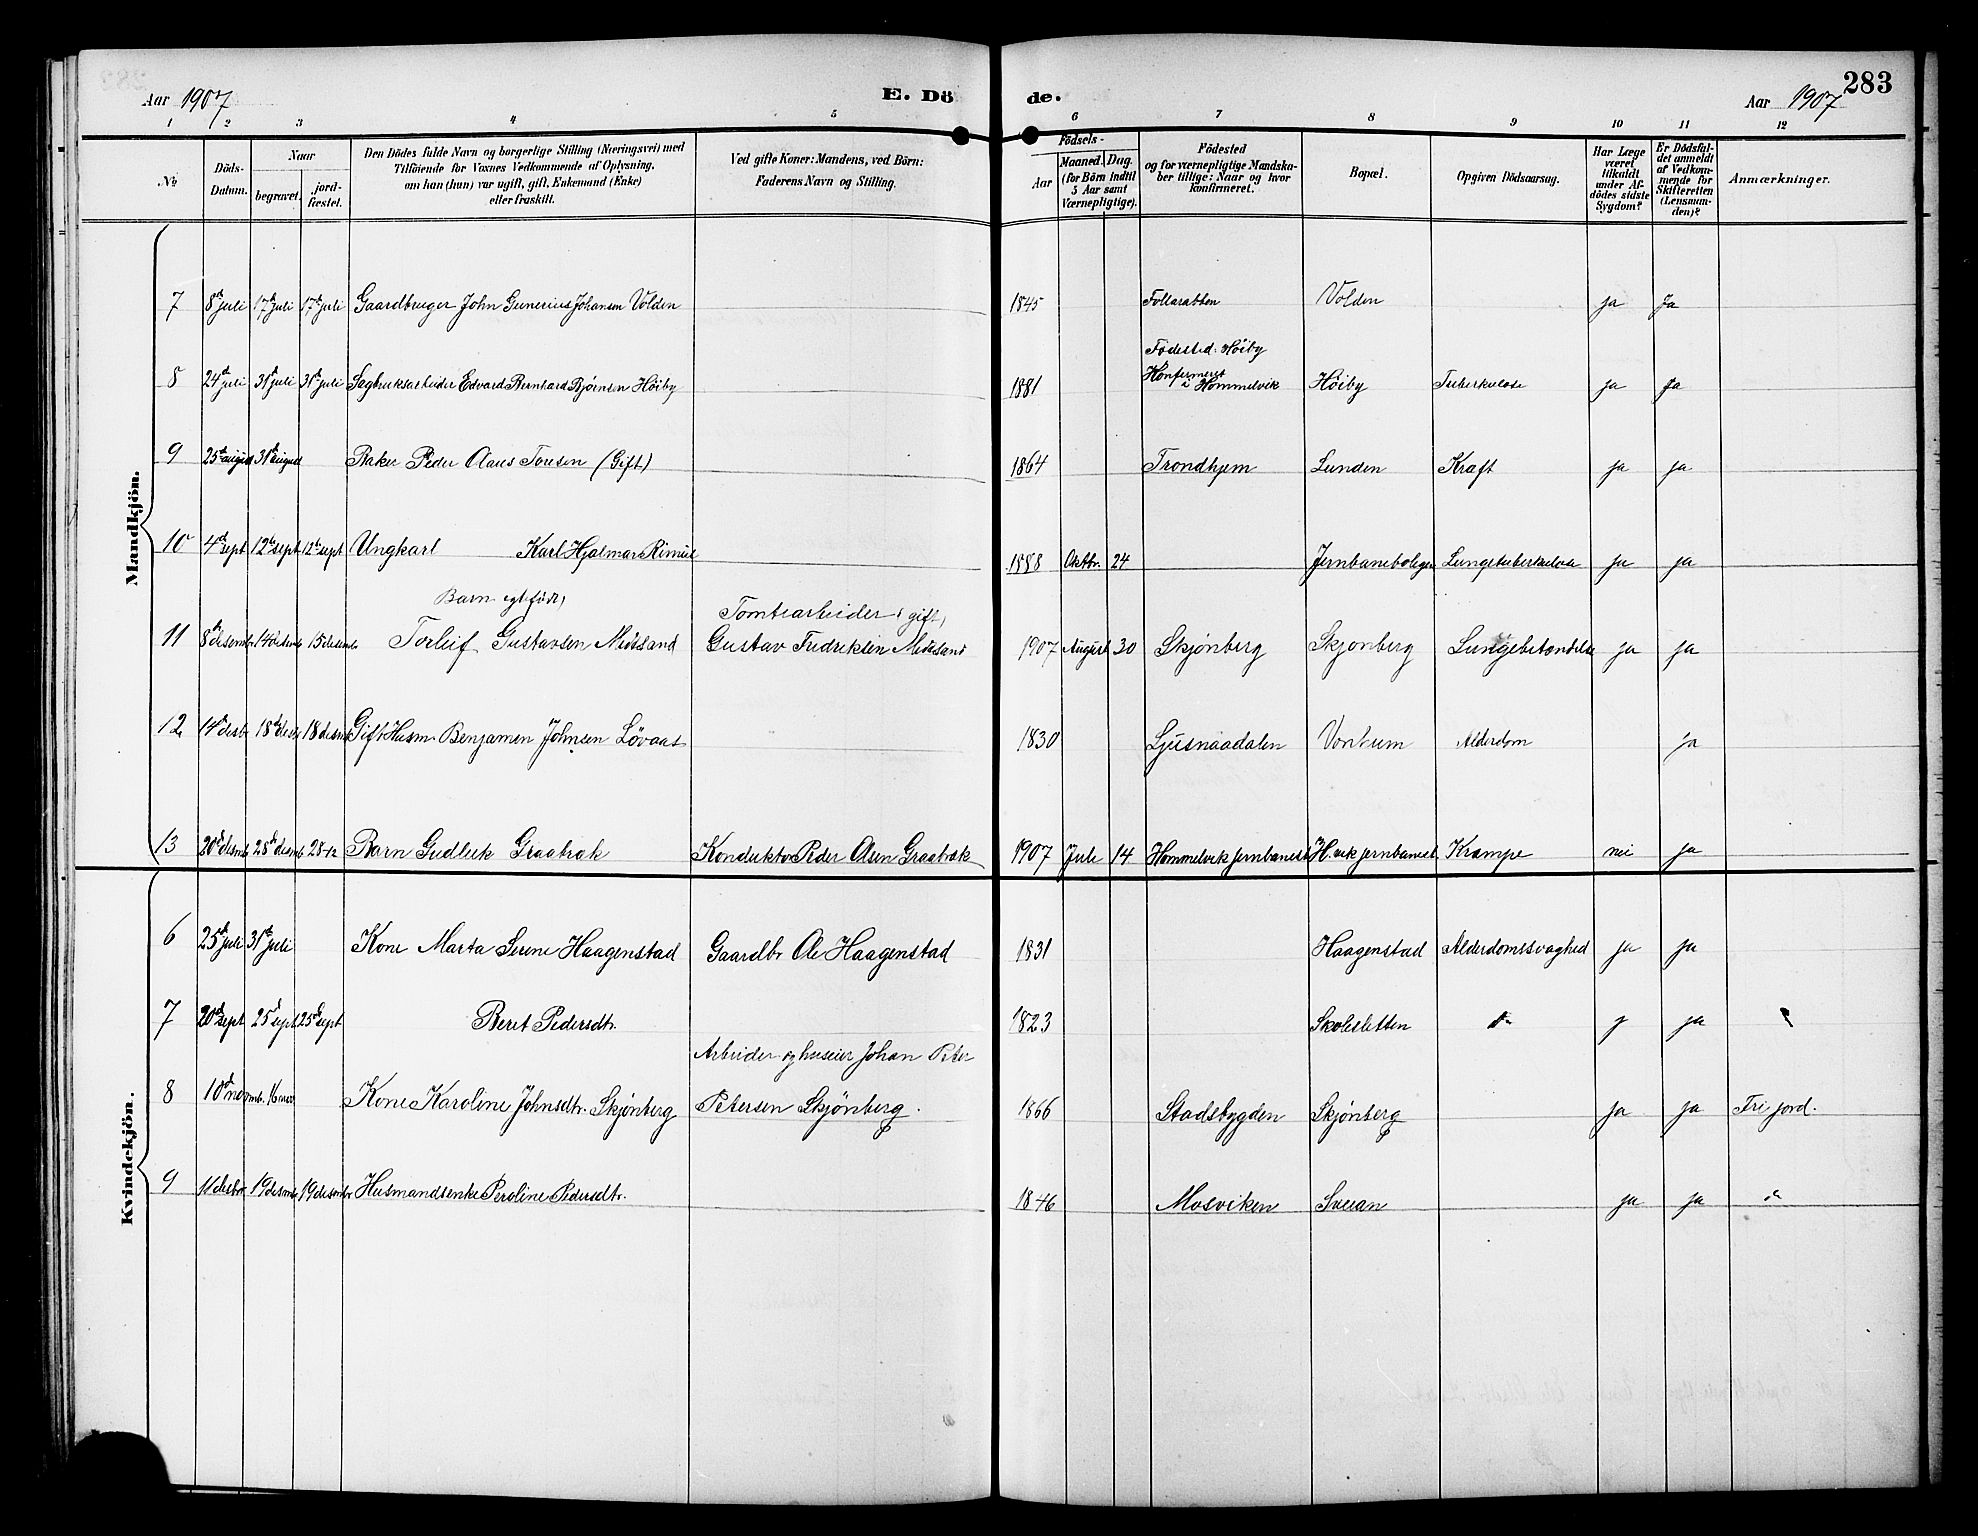 283
Aar 1907 E. Döde. Aar 1907
1 2 3 4 5 6 7 8 9 10 11 12
No
Döds-Datum.
Naar
begravet.
jord-fæstet.
Den Dödes fulde Navn og borgerlige Stilling (Næringsvei) med
Tilföiende for Voxnes Vedkommende af Oplysning,
om han (hun) var ugift, gift, Enkemand (Enke)
eller fraskilt.
Ved gifte Koner: Mandens, ved Börn:
Faderens Navn og Stilling.
Födsels-
Aar
Maaned. Dag.
(for Börn indtil
5 Aar samt
Værnepligtige).
Födested
og for værnepligtige Mandska-
ber tillige: Naar og hvor
konfirmeret.
Bopæl.
Opgiven Dödsaarsag.
Har Læge
været
tilkaldt
under Af-
dödes sidste
Sygdom?
Er Dödsfal-
det anmeldt
af Vedkom-
mende for
Skifteretten
(Lensman-
den)?
Anmærkninger.
Mandkjön.
7 8de juli 17de juli 17de juli Gaardbruger John Gunerius Johansen Volden 1845 Volden ja Ja
Födested: Höiby
8 24de juli 31te juli 31te juli Sagbruksarbeider Edvard Bernhard Bjørnsen Höiby 1881 Konfirmeret i Hommelvik Höiby Tuberkulose ja Ja
9 25de august 31te august Baker Peder Olaus Toresen (Gift) 1864 Trondhjem Lunden Kræft ja ja
10 4de sept 12te sept 12te sept Ungkarl Karl Hjalmar Rimul 1888 Oktbr. 24 Jernbaneboliger Lungetuberkulose ja ja
Barn egtefödt, Tomtearbeider, gift,
11 8de desemb 14 desemb 15 desemb Torleif Gustavsen Midtsand Gustav Fredriksen Midtsand 1907 August 30 Skjönberg Skjonberg Lungebetændelse ja ja
12 14de desbr 18de des 18 desmb Gift Husm. Benjamen Johnsen Lövaas 1830 Ljusnaadalen Alderdom ja
13 20de desmb 28de desmb 28-12 Barn Gudleik Graabrak Konduktør Peder Olsen Graabrak 1907 Juli 14 Hommelvik jernbanest H.vik jernbanest Krampe nei ja
Kvindekjön.
6 25de juli 31te juli Kone Marta Serine Haagenstad Gaardbr Ole Haagenstad 1831 Haagenstad Alderdomssvaghed ja ja
7 20de sept 25de sept 25de sept Beret Pedersdtr. 1823 Skolesletten do j ja
Arbeider og huseier Johan Peter
8 10de novmb. 16 nov Kone Karoline Johnsdtr. Skjönberg Petersen Skjönberg. 1866 Stadsbygden Skjönberg ja ja Fri jord.
9 11 desbr 19 desmb 19 desembr Husmandsenke Peroline Pedersdtr. 1846 Mosviken Sveian ja ja do